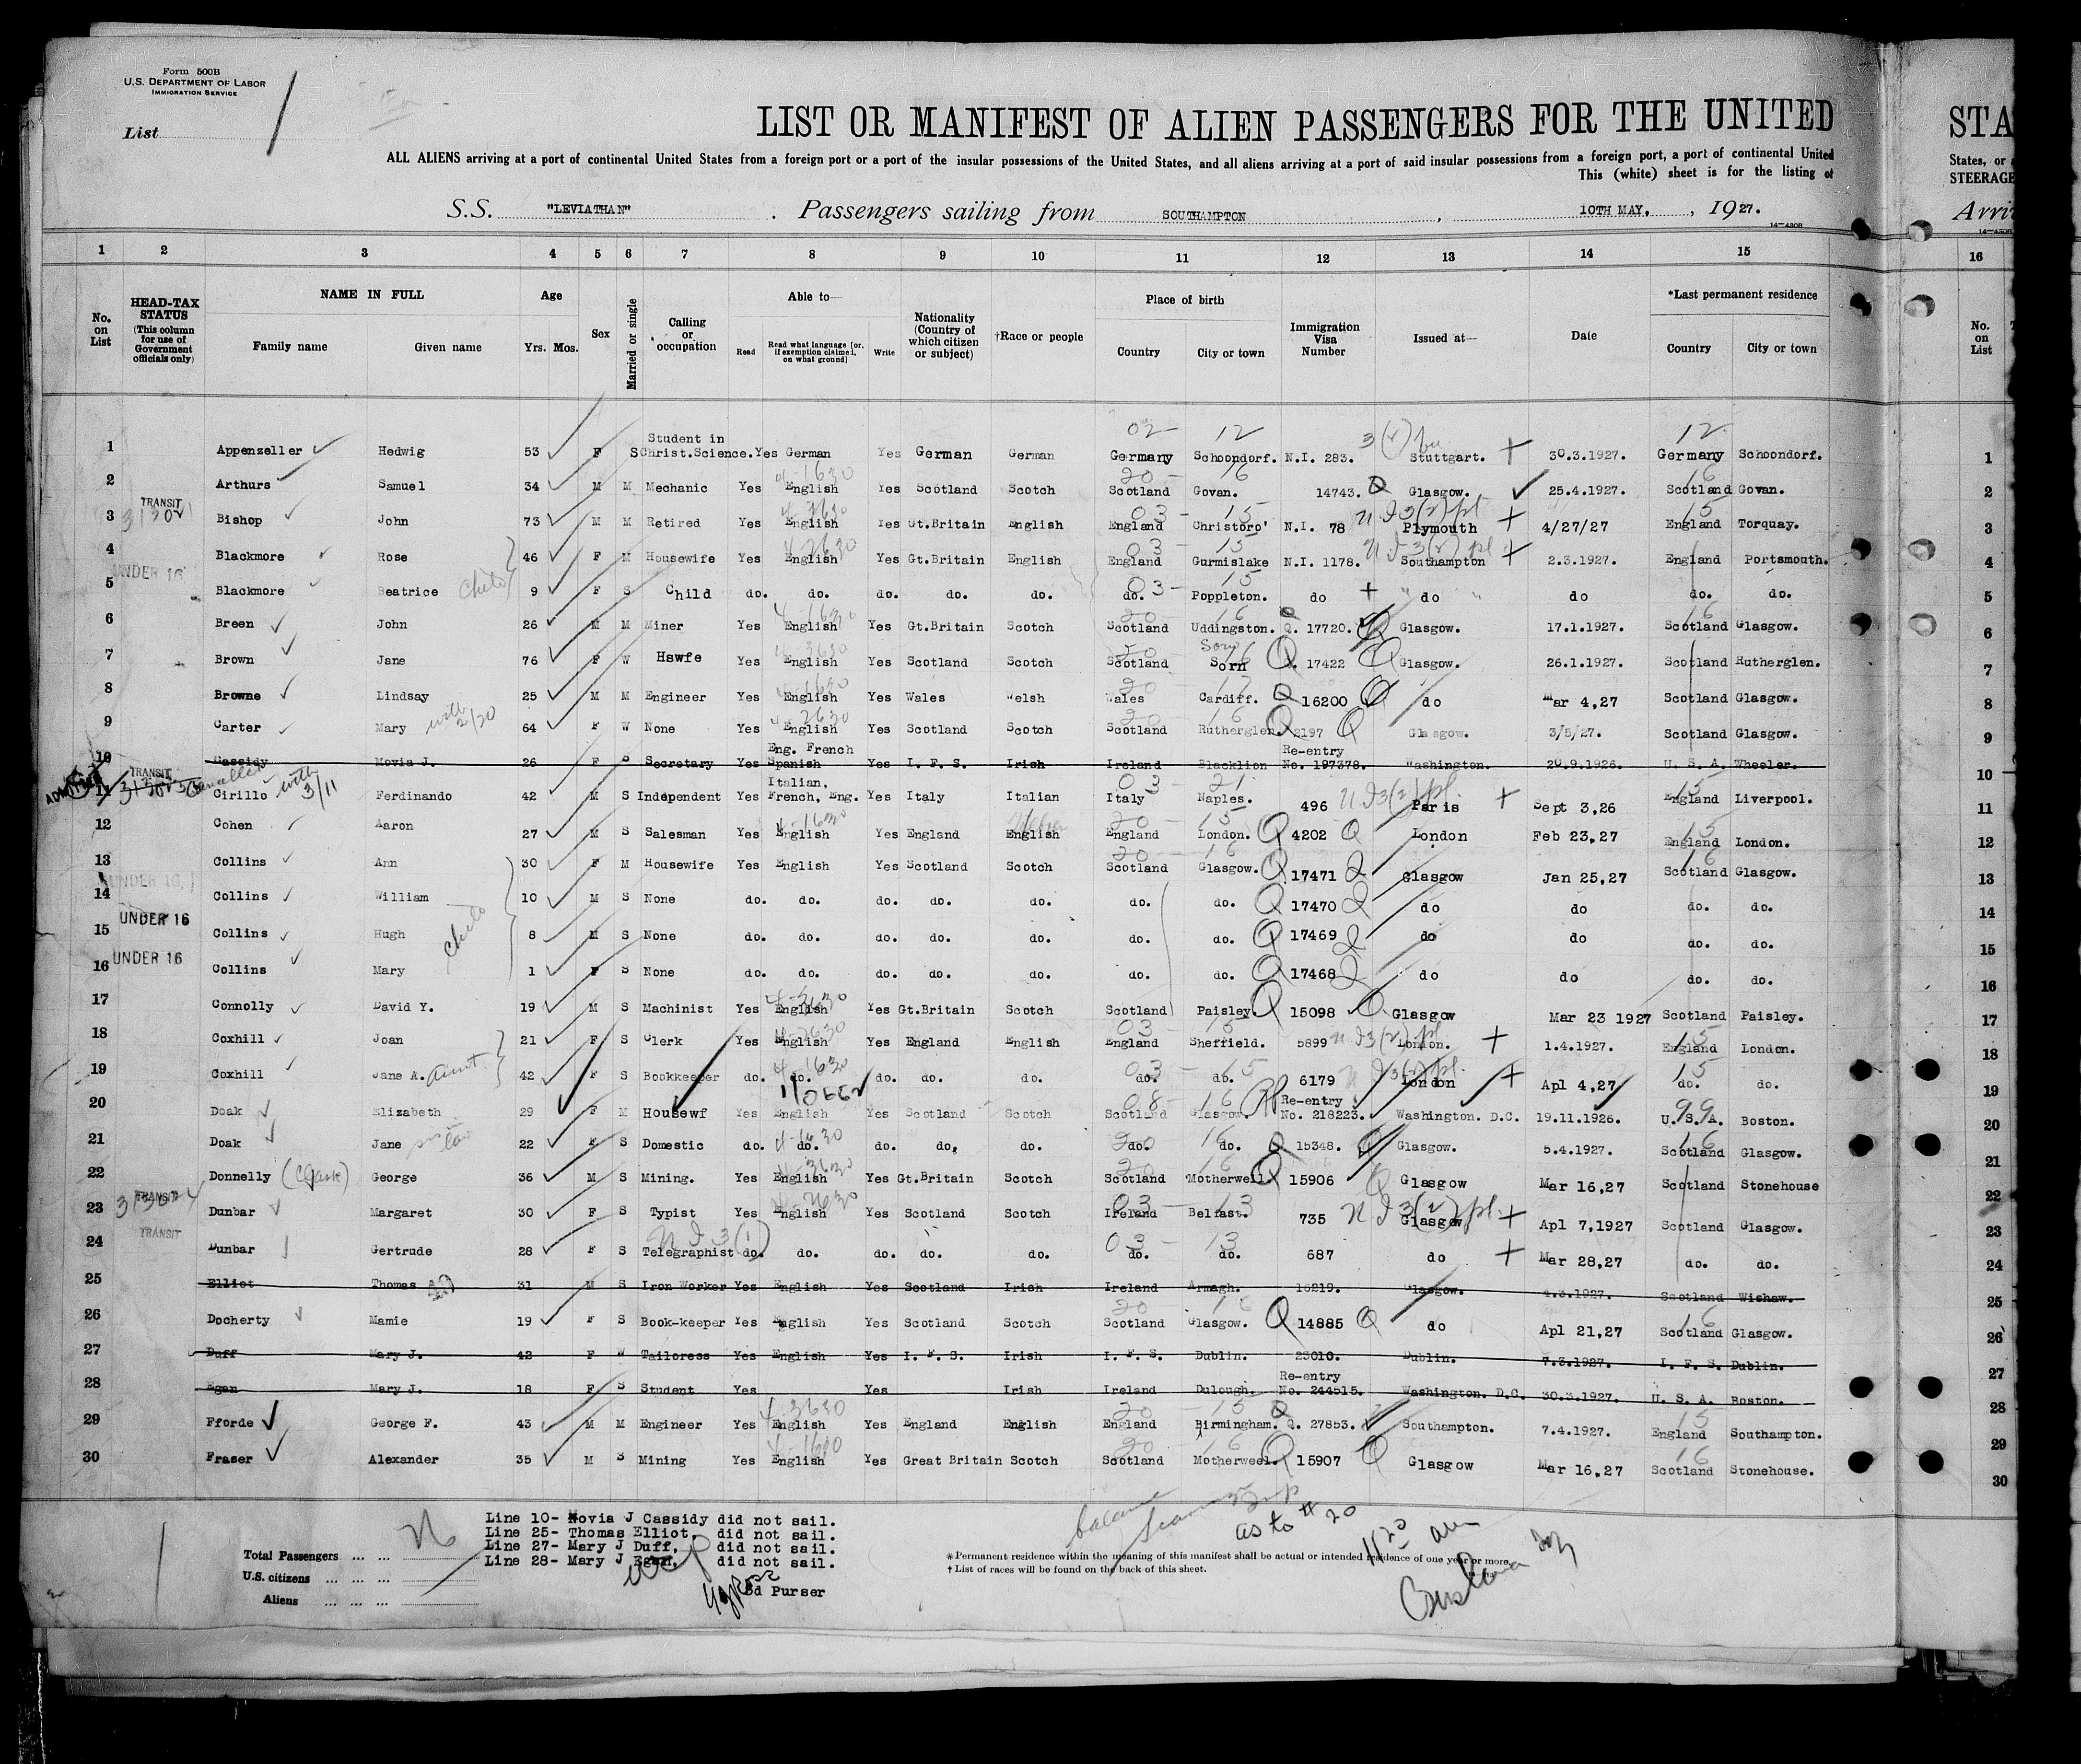 Form 500B
U.S. DEPARTMENT OF LABOR
IMMIGRATION SERVICE
List
LIST OR MANIFEST OF ALIEN PASSENGERS FOR THE UNITED
STA
ALL ALIENS arriving at a port of continental United States from a foreign port or a port of the insular possessions of the United States, and all aliens arriving at a port of said insular possessions from a foreign port, a port of continental United
States, or
This (white) sheet is for the listing of
STEERAGE
S.S. "LEVIATHAN". Passengers sailing from SOUTHAMPTON, 10TH MAY, , 1927.
Arri
14-430B
1 2 3 4 5 6 7 8 9 10 11 12 13 14 15 16
No. on List
HEAD-TAX STATUS (This column for use of Government officials only)
NAME IN FULL Family name Given name
Age Yrs. Mos.
Sex
Married or single
Calling or occupation
Able to— Read Read what language [or, if exemption claimed, on what ground] Write
Nationality (Country of which citizen or subject)
†Race or people
Place of birth Country City or town
Immigration Visa Number
Issued at—
Date
*Last permanent residence Country City or town
No. on List
1 Appenzeller Hedwig 53 F S Student in Christ.Science. Yes German Yes German German Germany Schoondorf. N.I. 283. Stuttgart. 30.3.1927. Germany Schoondorf. 1
2 Arthurs Samuel 34 M M Mechanic Yes English Yes Scotland Scotch Scotland Govan. 14743. Glasgow. 25.4.1927. Scotland Govan. 2
3 TRANSIT Bishop John 73 M M Retired Yes English Yes Gt.Britain English England Christoro' N.I. 78 Plymouth 4/27/27 England Torquay. 3
4 Blackmore Rose 46 F M Housewife Yes English Yes Gt.Britain English England Gurmislake N.I. 1178. Southampton 2.3.1927. England Portsmouth. 4
UNDER 16
5 Blackmore Beatrice 9 F S Child do. do. do. do. do. do. Poppleton. do " do " do do. do. 5
6 Breen John 26 M M Miner Yes English Yes Gt.Britain Scotch Scotland Uddingston. Q. 17720. Glasgow. 17.1.1927. Scotland Glasgow. 6
7 Brown Jane 76 F W Hswfe Yes English Yes Scotland Scotch Scotland Sorn 17422 Glasgow. 26.1.1927. Scotland Rutherglen. 7
8 Browne Lindsay 25 M M Engineer Yes English Yes Wales Welsh Wales Cardiff. 16200 do Mar 4,27 Scotland Glasgow. 8
9 Carter Mary with 2/20 64 F W None Yes English Yes Scotland Scotch Scotland Rutherglen 2197 Glasgow. 3/5/27. Scotland Glasgow. 9
10 Cassidy Movia J. 26 F S Secretary Yes Eng. French Spanish Yes I. F. S. Irish Ireland Blacklion Re-entry No. 197378. Washington. 20.9.1926. U. S. A. Wheeler. 10
ADMITTED TRANSIT
11 Cirillo with 3/11 Ferdinando 42 M S Independent Yes Italian, French, Eng. Yes Italy Italian Italy Naples. 496 Paris Sept 3,26 England Liverpool. 11
12 Cohen Aaron 27 M S Salesman Yes English Yes England English England London. 4202 London Feb 23,27 England London. 12
13 Collins Ann 30 F M Housewife Yes English Yes Scotland Scotch Scotland Glasgow. 17471 Glasgow Jan 25,27 Scotland Glasgow. 13
UNDER 16
14 Collins William 10 M S None do. do. do. do. do. do. do. 17470 do do do. do. 14
UNDER 16
15 Collins Hugh 8 M S None do. do. do. do. do. do. do. 17469 do do do. do. 15
UNDER 16
16 Collins Mary 1 F S None do. do. do. do. do. do. do. 17468 do do do. do. 16
17 Connolly David Y. 19 M S Machinist Yes English Yes Gt.Britain Scotch Scotland Paisley. 15098 Glasgow Mar 23 1927 Scotland Paisley. 17
18 Coxhill Joan 21 F S Clerk Yes English Yes England English England Sheffield. 5899 London. 1.4.1927. England London. 18
19 Coxhill Jane A. Aunt 42 F S Bookkeeper do. do. do. do. do. do. do. 6179 London Apl 4,27 do. do. 19
20 Doak Elizabeth 29 F M Housewf Yes English Yes Scotland Scotch Scotland Glasgow. Re-entry No. 218223. Washington. D.C. 19.11.1926. U.S.A. Boston. 20
21 Doak Jane 22 F S Domestic do. do. do. do. do, do. do. 15348. Glasgow. 5.4.1927. Scotland Glasgow. 21
22 Donnelly (Clark) George 36 M S Mining. Yes English Yes Gt.Britain Scotch Scotland Motherwell 15906 Glasgow Mar 16,27 Scotland Stonehouse 22
TRANSIT
23 Dunbar Margaret 30 F S Typist Yes English Yes Scotland Scotch Ireland Belfast. 735 Glasgow Apl 7,1927 Scotland Glasgow. 23
TRANSIT
24 Dunbar Gertrude 28 F S Telegraphist do. do. do. do. do. do. do. 687 do Mar 28,27 do. do. 24
25 Elliot Thomas 31 M S Iron Worker Yes English Yes Scotland Irish Ireland Armagh. 16219. Glasgow. 4.3.1927. Scotland Wishaw. 25
26 Docherty Mamie 19 F S Book-keeper Yes English Yes Scotland Scotch Scotland Glasgow. 14885 do Apl 21,27 Scotland Glasgow. 26
27 Duff Mary J. 42 F W Tailoress Yes English Yes I. F. S. Irish I. F. S. Dublin. 23010. Dublin. 7.3.1927. I. F. S. Dublin. 27
28 Egan Mary J. 18 F S Student Yes Yes Irish Ireland Dulough. Re-entry No. 244515. Washington. D.C. 30.3.1927. U. S. A. Boston. 28
29 Fforde George F. 43 M M Engineer Yes English Yes England English England Birmingham. Q. 27853. Southampton. 7.4.1927. England Southampton. 29
30 Fraser Alexander 35 M S Mining Yes English Yes Great Britain Scotch Scotland Motherweel. 15907 Glasgow Mar 16,27 Scotland Stonehouse. 30
Line 10- Movia J Cassidy did not sail.
Line 25- Thomas Elliot. did not sail.
Line 27- Mary J Duff, did not sail.
Line 28- Mary J Egan, did not sail.
3d Purser
Total Passengers ... ...
U.S. citizens ... ... ...
Aliens ... ... ...
as to # 20
*Permanent residence within the meaning of this manifest shall be actual or intended residence of one year or more.
† List of races will be found on the back of this sheet.